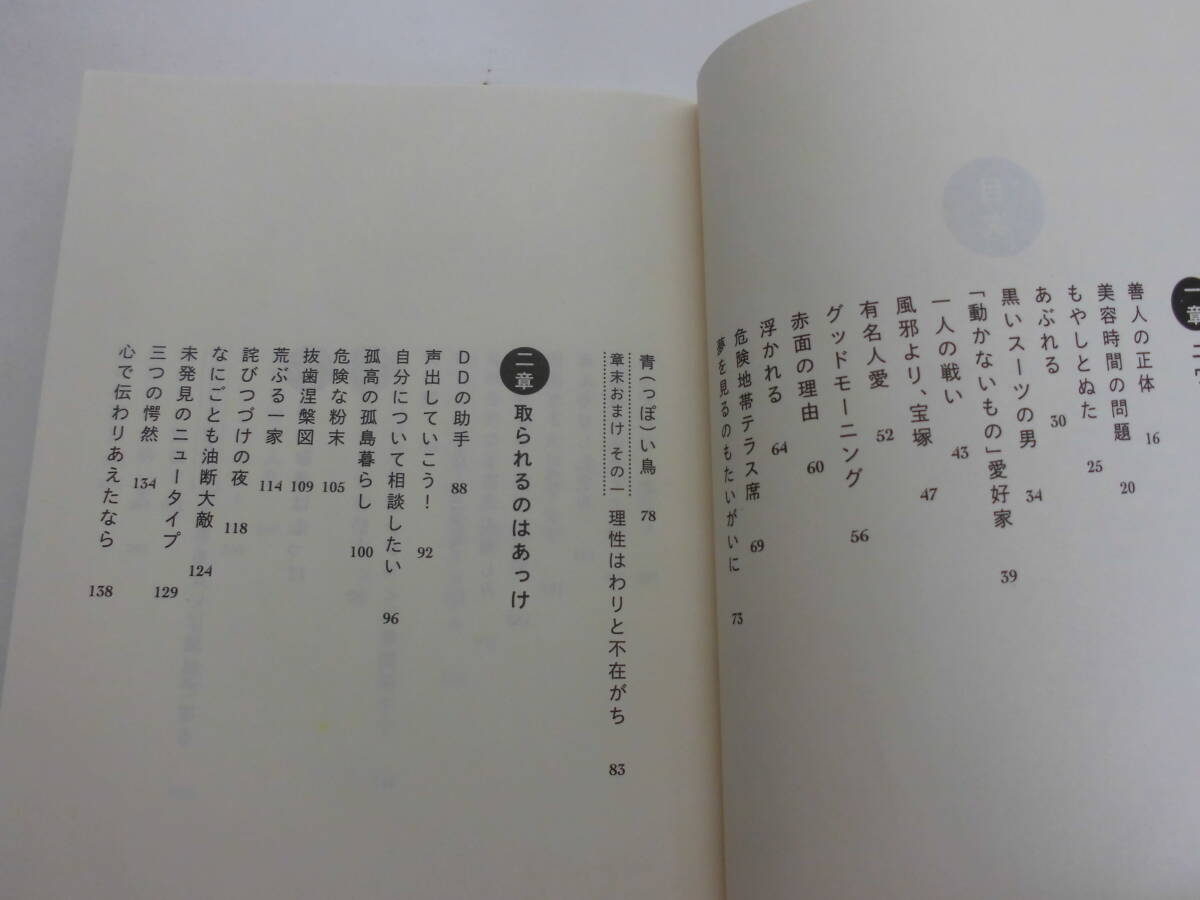 一章
善人の正体 16
美容時間の問題 20
もやしとぬた 25
あぶれる 30
黒いスーツの男 34
「動かないもの」愛好家 39
一人の戦い 43
風邪より、宝塚 47
有名人愛 52
グッドモーニング 56
赤面の理由 60
浮かれる 64
危険地帯テラス席 69
夢を見るのもたいがいに 73
青(っぽ)い鳥 78
章末おまけ その一 理性はわりと不在がち 83
二章 取られるのはあっけ
DDの助手 88
声出していこう! 92
自分について相談したい 96
孤高の孤島暮らし 100
危険な粉末 105
抜歯涅槃図 109
荒ぶる一家 114
詫びつづけの夜 118
なにごとも油断大敵 124
未発見のニュータイプ 129
三つの愕然 134
心で伝わりあえたなら 138